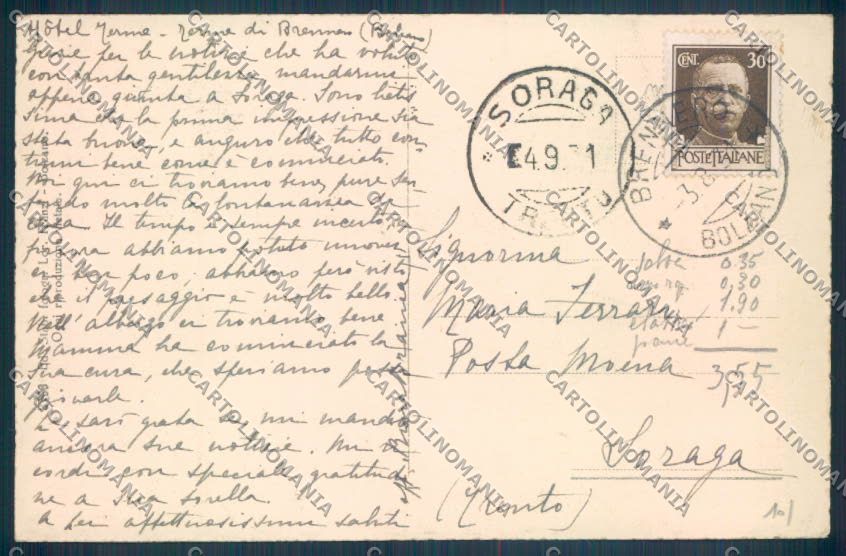 Hôtel Terme - Terme di Brennero (Bolzano)
Grazie per le notizie che ha voluto
con tanta gentilezza mandarmi
appena giunta a Soraga. Sono lietis
sima che la prima impressione sia
stata buona, e auguro che tutto con
tinui bene come è cominciato.
Noi qui ci troviamo bene, pure sen
tendo molto la lontananza da
casa. Il tempo è sempre incerto,
finora abbiamo potuto muover
ci ben poco, abbiamo però visto
che il paesaggio è molto bello.
Nell'albergo ci troviamo bene
Mamma ha cominciato la
sua cura, che speriamo possa
giovarle.
Le sarò grata se mi manderà
ancora sue notizie. Mi ri
cordi con speciale gratitudi
ne a Sua Sorella.
A Lei affettuosissimi saluti
SORAGA
4.9.31
TRENTO
BRENNERO
BOLZANO
CENT. 30
POSTE ITALIANE
Signorina
Maria Ferrari
Posta Moena
Soraga
(Trento)
0.35
0,30
1.90
pane 1 -
3,55
10/
CARTOLINOMANIA